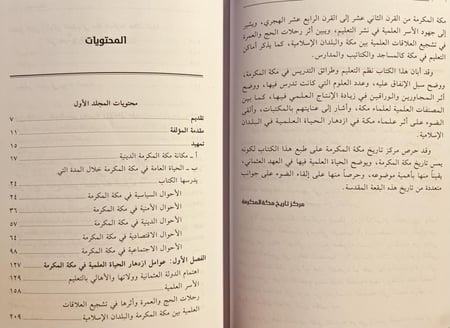 مكة المكرمة من القرن الثاني عشر إلى القرن الرابع عشر الهجري، ويشير
إلى جهود الأسر العلمية في نشر التعليم، ويبين أثر رحلات الحج والعمرة
في تشجيع العلاقات العلمية بين مكة والبلدان الإسلامية، كما يذكر أماكن
التعليم في مكة كالمساجد والكتاتيب والمدارس.
وقد أبان هذا الكتاب نظم التعليم وطرائق التدريس في مكة المكرمة،
ووضح سبل الإنفاق عليه، وعدد العلوم التي كانت تدرس فيها، ووضح
أثر المجاورين والوراقين في زيادة الإنتاج العلمي فيها، كما بين
المصنفات العلمية لعلماء مكة، وأشار إلى عنايتهم بالمكتبات، وألقى
الضوء على أثر علماء مكة في ازدهار الحياة العلمية في البلدان
الإسلامية.
وقد حرص مركز تاريخ مكة المكرمة على طبع هذا الكتاب لكونه
يمس تاريخ مكة المكرمة، ويوضح الحياة العلمية فيها في العهد العثماني،
يقيناً منها بأهمية موضوعه، وحرصاً منها على إلقاء الضوء على جوانب
متعددة من تاريخ هذه البقعة المقدسة.
مركز تاريخ مكة المكرمة
المحتويات
محتويات المجلد الأول
تقديم ٧
مقدمة المؤلفة ١١
تمهيد ١٥
أ ـ مكانة مكة المكرمة الدينية ١٧
ب ـ الحياة العامة في مكة المكرمة خلال المدة التي
يدرسها الكتاب ٢٤
الأحوال السياسية في مكة المكرمة ٢٤
الأحوال الأمنية في مكة المكرمة ٣٦
الأحوال الدينية في مكة المكرمة ٥٧
الأحوال الاقتصادية في مكة المكرمة ٦٤
الأحوال الاجتماعية في مكة المكرمة ٩٨
الفصل الأول: عوامل ازدهار الحياة العلمية في مكة المكرمة ١٢٧
اهتمام الدولة العثمانية وولاتها والأهالي بالتعليم ١٢٩
الأسر العلمية ١٥٨
رحلات الحج والعمرة وأثرها في تشجيع العلاقات
العلمية بين مكة المكرمة والبلدان الإسلامية ٢٠٩